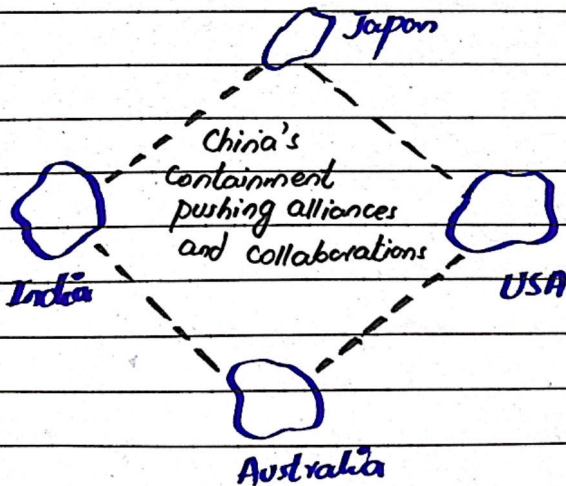 Japan
China's
Containment
pushing alliances
and collaborations
India
USA
Australia